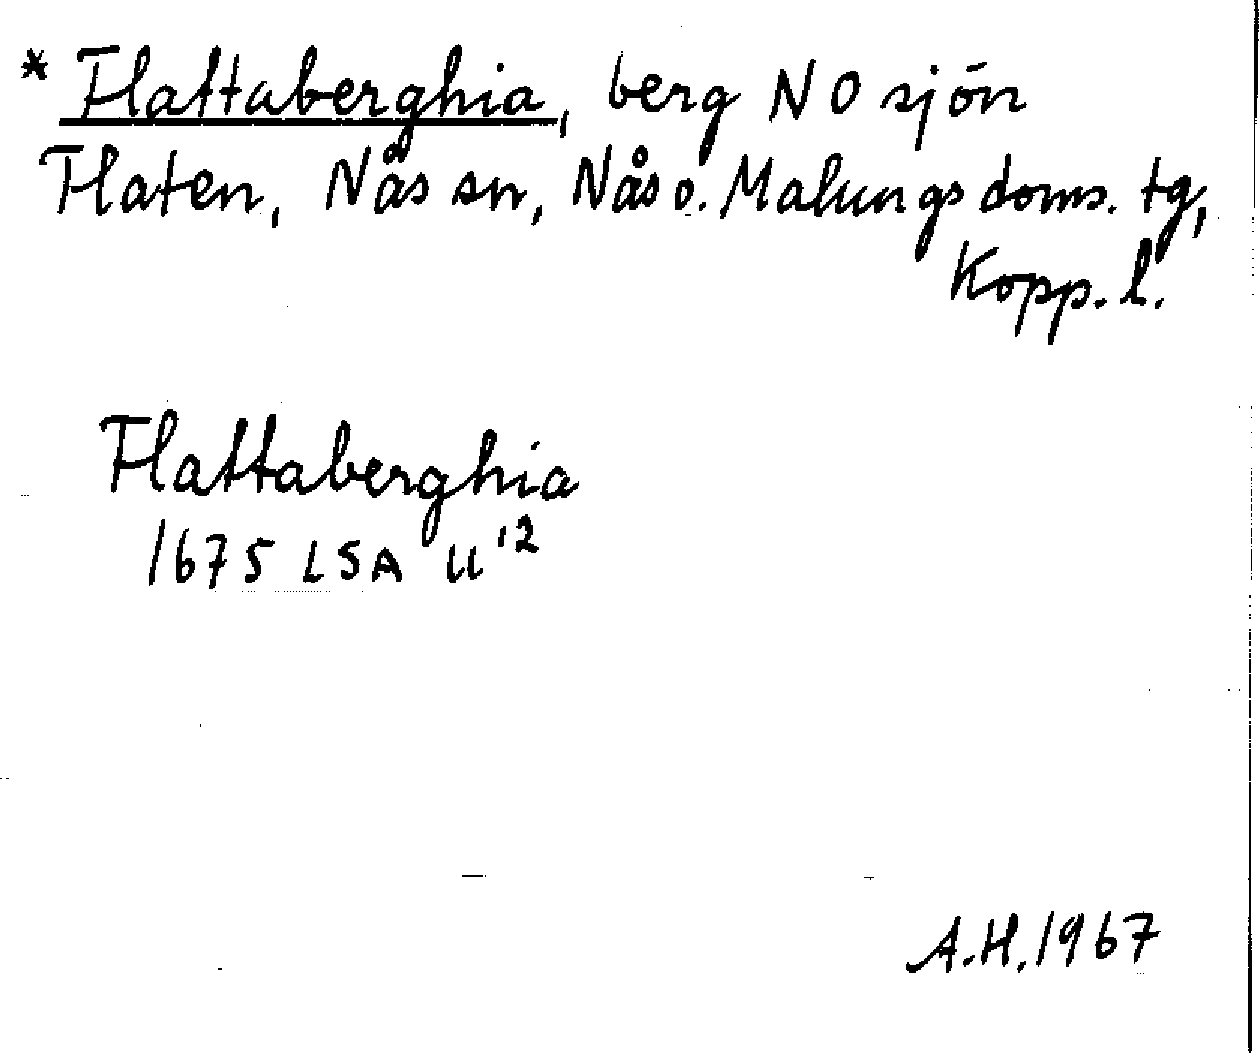 * Flattaberghia, berg NO sjön
Flaten, Nås sn, Nås o. Malungs doms. tg,
Kopp. l.
Flattaberghia
1675 LSA U'2
A.H. 1967